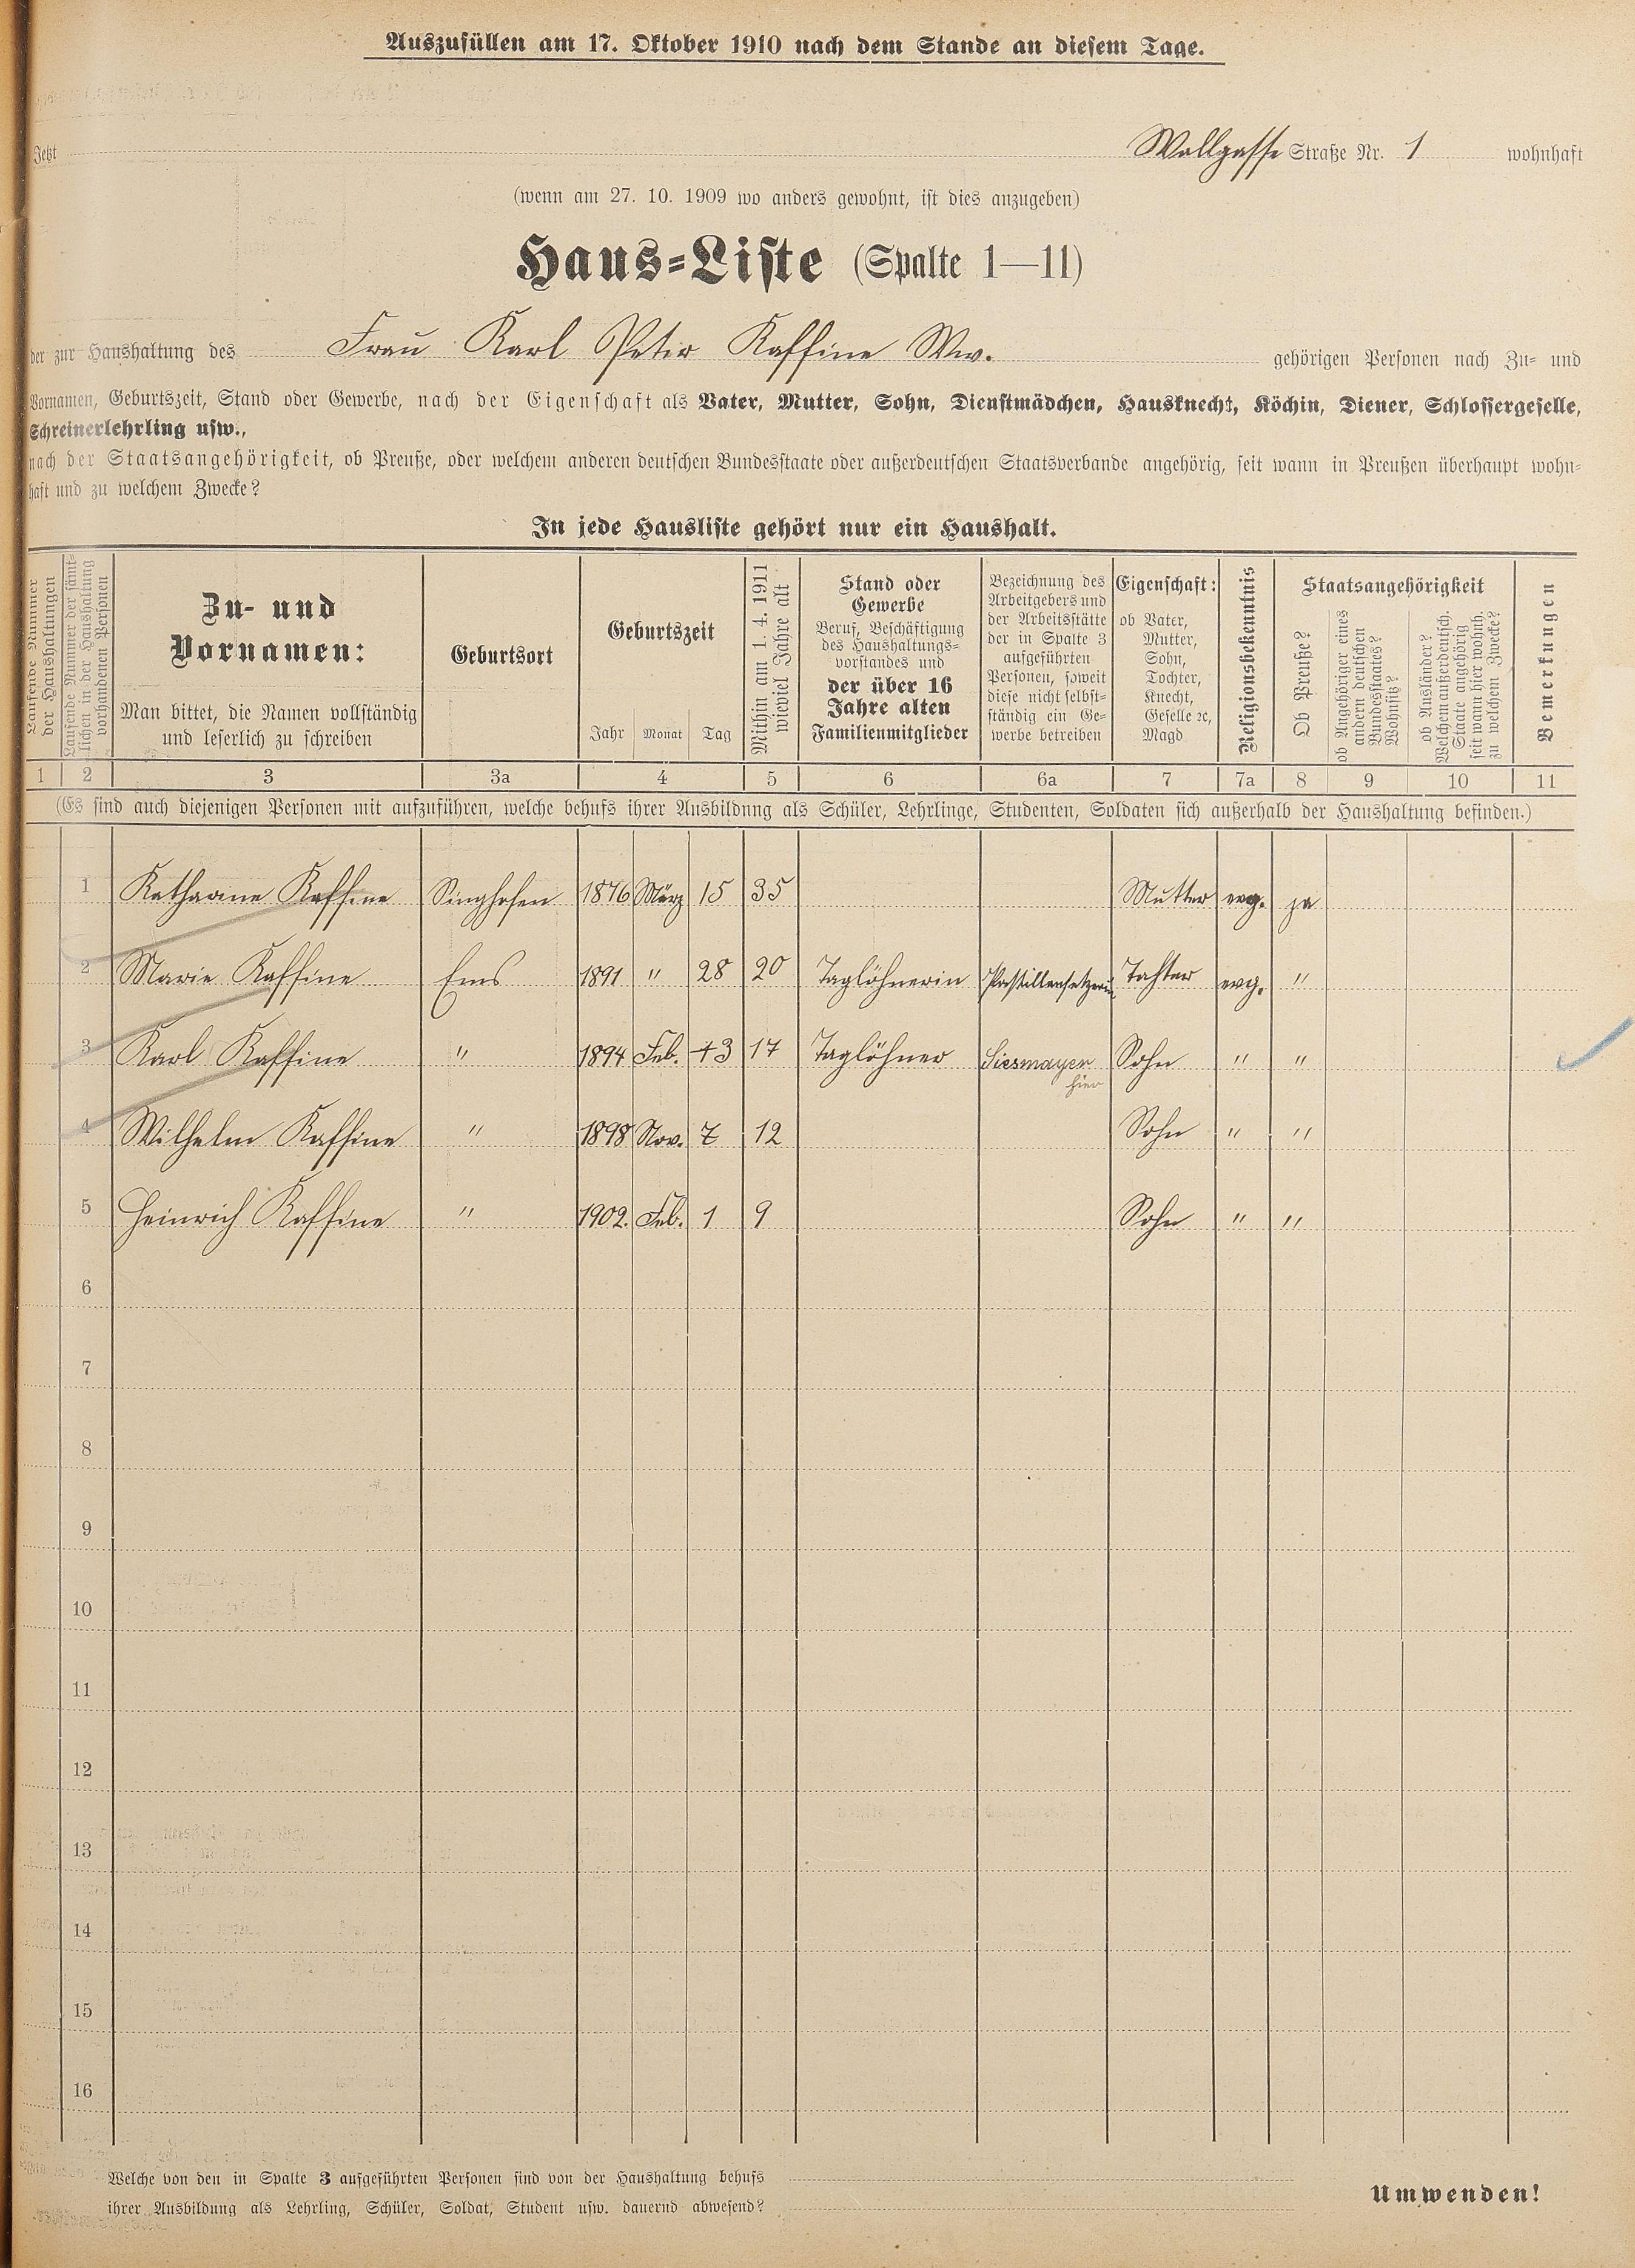 Auszufüllen am 17. Oktober 1910 nach dem Stande an diesem Tage.
Jetzt Wallgasse Straße Nr. 1 wohnhaft
(wenn am 27. 10. 1909 wo anders gewohnt, ist dies anzugeben)
Haus-Liste (Spalte 1—11)
der zur Haushaltung des Frau Karl Peter Kaffine Ww. gehörigen Personen nach Zu- und
Vornamen, Geburtszeit, Stand oder Gewerbe, nach der Eigenschaft als Vater, Mutter, Sohn, Dienstmädchen, Hausknecht, Köchin, Diener, Schlossergeselle,
Schreinerlehrling usw.,
nach der Staatsangehörigkeit, ob Preuße, oder welchem anderen deutschen Bundesstaate oder außerdeutschen Staatsverbande angehörig, seit wann in Preußen überhaupt wohn-
haft und zu welchem Zwecke?
In jede Hausliste gehört nur ein Haushalt.
Laufende Nummer
der Haushaltungen
Laufende Nummer der sämt-
lichen in der Haushaltung
vorhandenen Personen
Zu- und
Vornamen:
Man bittet, die Namen vollständig
und leserlich zu schreiben
Geburtsort
Geburtszeit
Jahr Monat Tag
Mithin am 1. 4. 1911
wieviel Jahre alt
Stand oder
Gewerbe
Beruf, Beschäftigung
des Haushaltungs-
vorstandes und
der über 16
Jahre alten
Familienmitglieder
Bezeichnung des
Arbeitgebers und
der Arbeitsstätte
der in Spalte 3
aufgeführten
Personen, soweit
diese nicht selbst-
ständig ein Ge-
werbe betreiben
Eigenschaft:
ob Vater,
Mutter,
Sohn,
Tochter,
Knecht,
Geselle ec,
Magd
Religionsbekenntnis
Staatsangehörigkeit
Ob Preuße?
ob Angehöriger eines
andern deutschen
Bundesstaates?
Wohnsitz?
ob Ausländer?
Welchem außerdeutsch.
Staate angehörig
seit wann hier wohnh.
zu welchem Zwecke?
Bemerkungen
1 2 3 3a 4 5 6 6a 7 7a 8 9 10 11
(Es sind auch diejenigen Personen mit aufzuführen, welche behufs ihrer Ausbildung als Schüler, Lehrlinge, Studenten, Soldaten sich außerhalb der Haushaltung befinden.)
1 Katharine Kaffine Singhofen 1876 März 15 35 Mutter evg. ja
2 Marie Kaffine Ems 1891 " 28 20 Taglöhnerin Pastillensetzerin Tochter evg. "
3 Karl Kaffine " 1894 Feb. 3 17 Taglöhner Siesmayer Sohn " "
hier
4 Wilhelm Kaffine " 1898 Nov. 7 12 Sohn " "
5 Heinrich Kaffine " 1902. Feb. 1 9 Sohn " "
6
7
8
9
10
11
12
13
14
15
16
Welche von den in Spalte 3 aufgeführten Personen sind von der Haushaltung behufs
ihrer Ausbildung als Lehrling, Schüler, Soldat, Student usw. dauernd abwesend?
Umwenden!